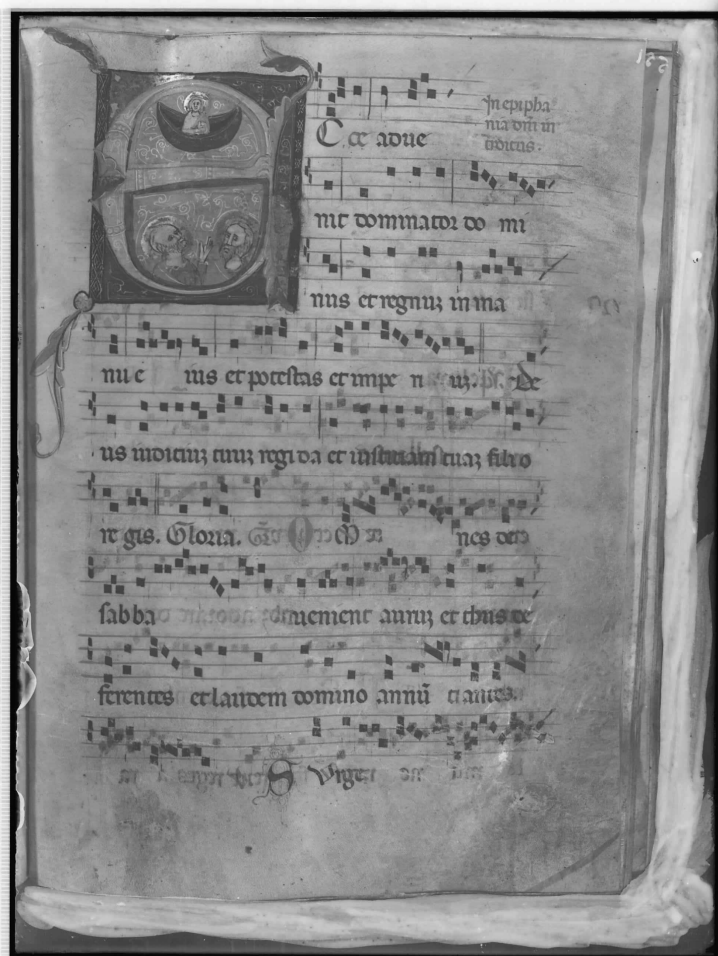 In epipha
nia dñi in
troitus.
Ecce adue
nit dominator do mi
nus et regnuȝ in ma
nu e ius et potestas et impe ri uȝ. De
us iudiciuȝ tuuȝ regi da et iustitiam tuaȝ filio
re gis. Gloria. Om nes de
sabba uenient auruȝ et thus de
ferentes et laudem domino annũ tiantes.
Surge